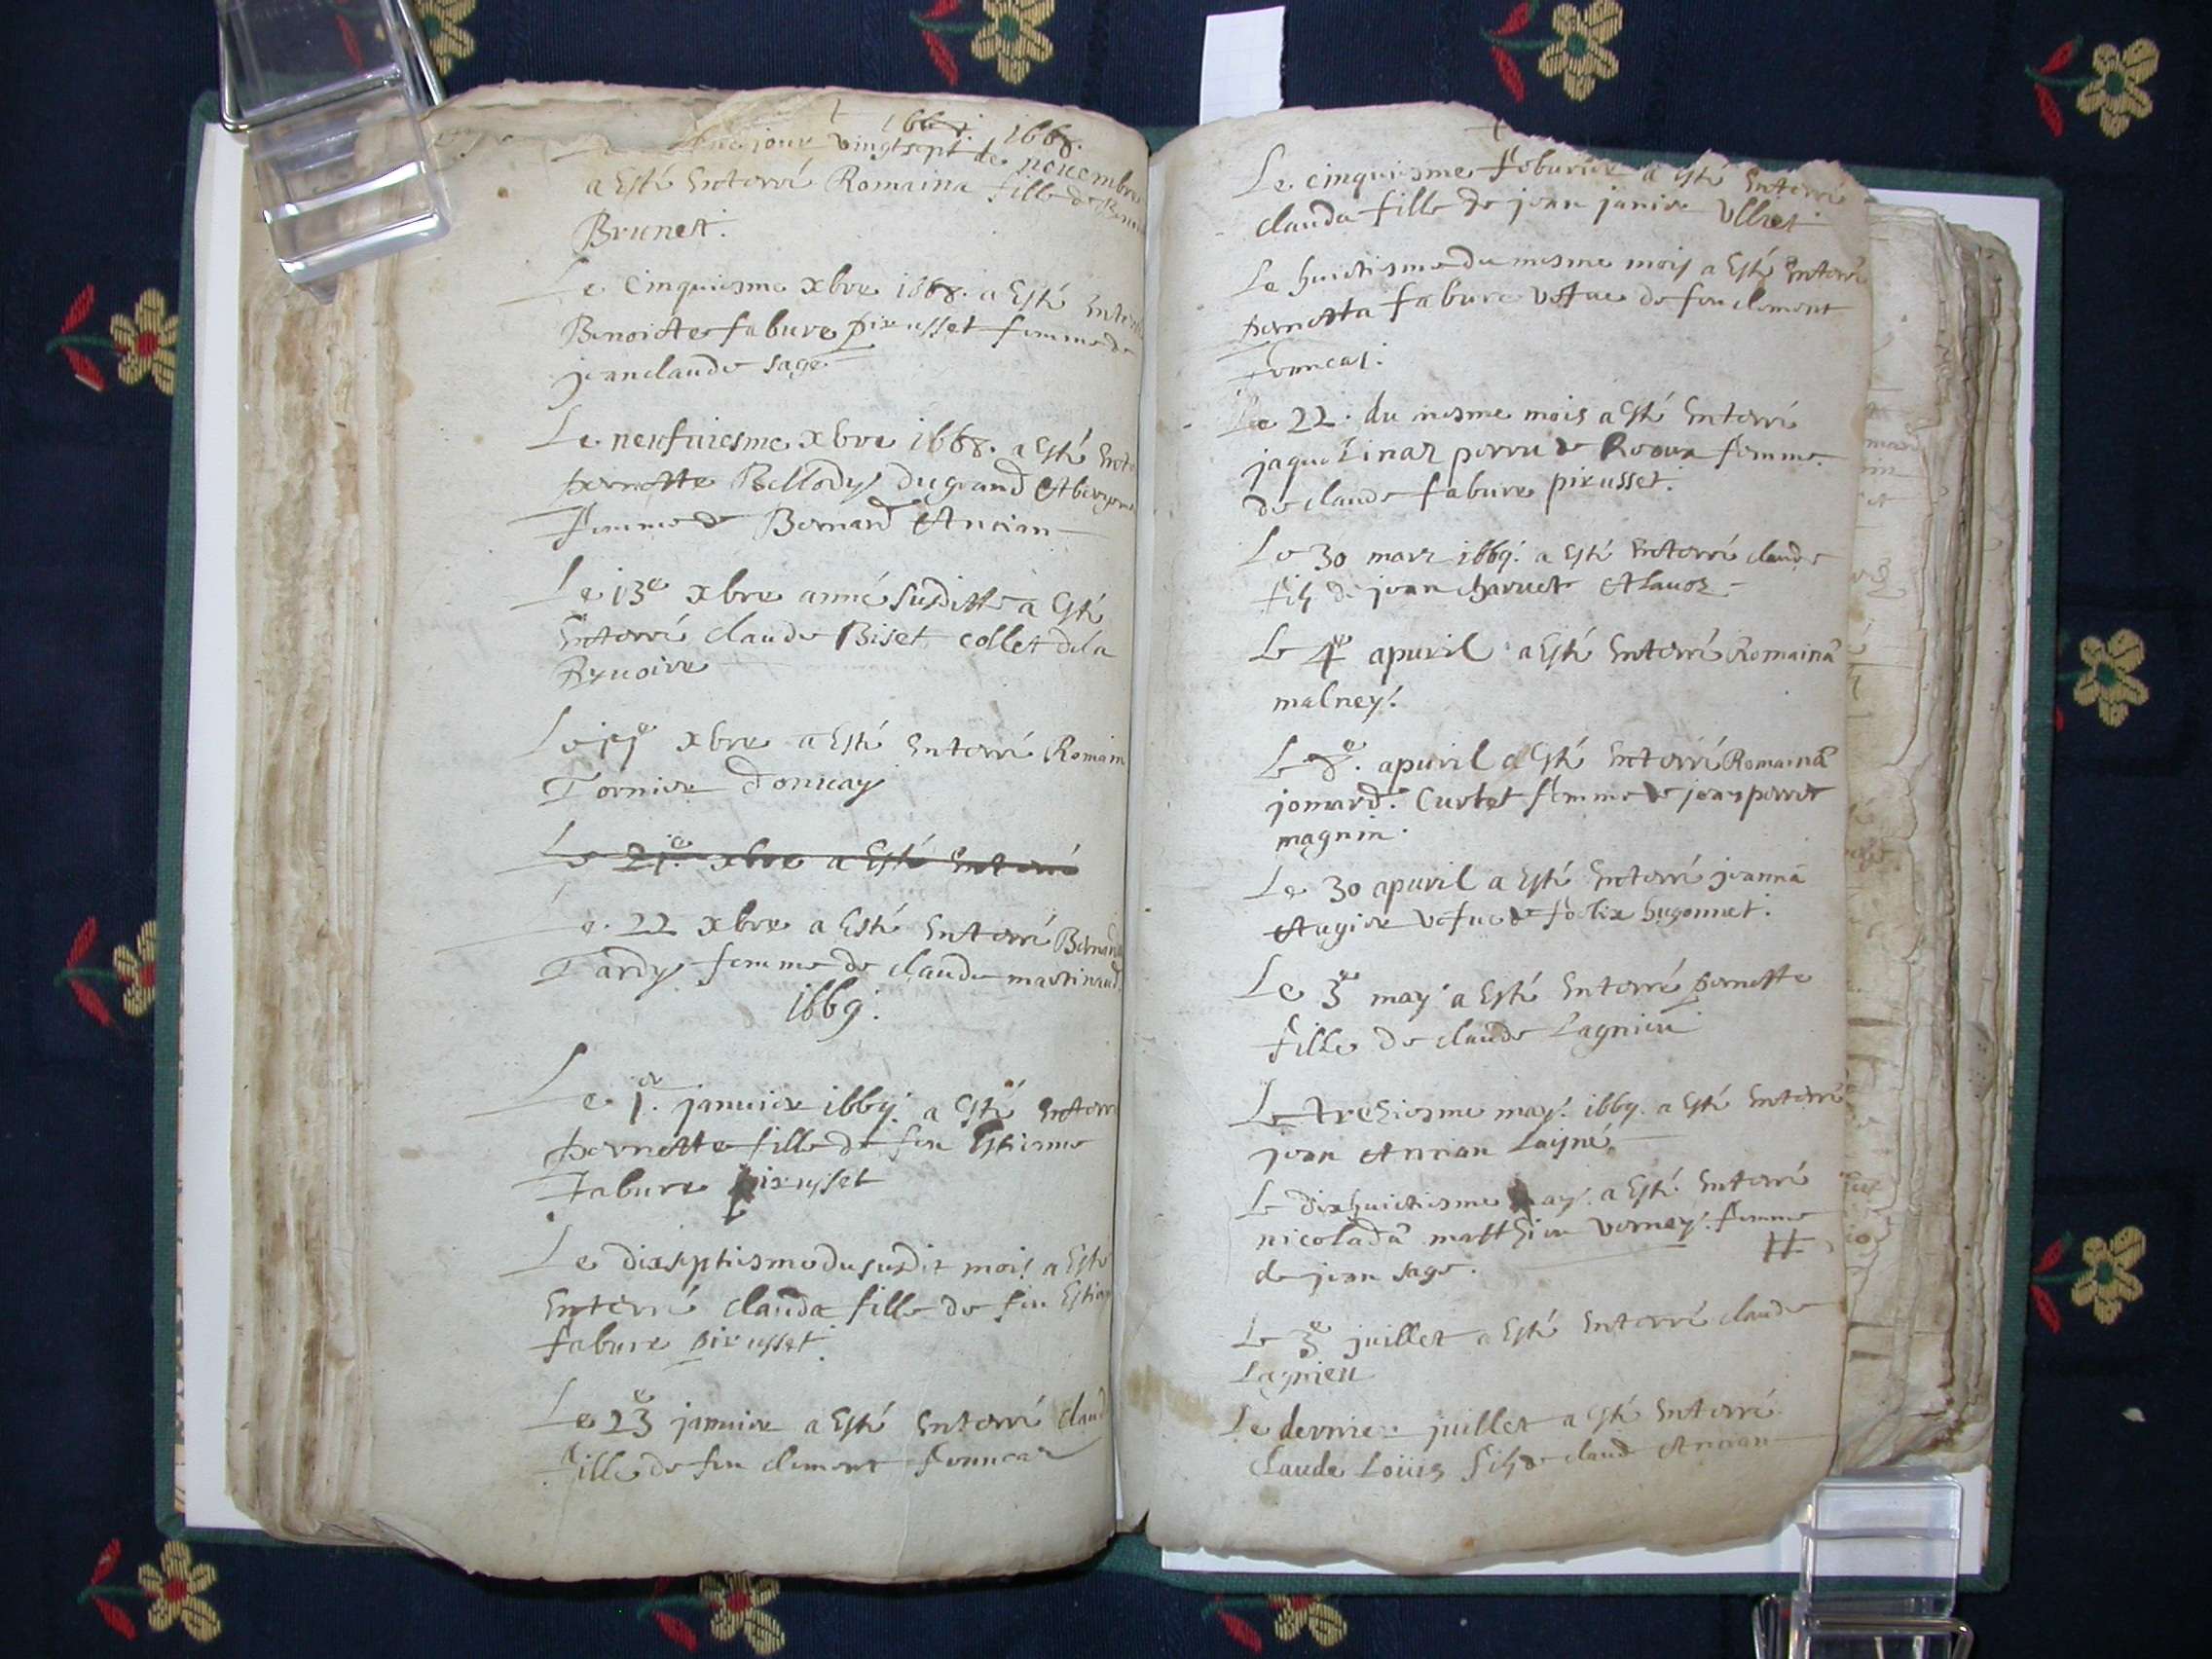 1668.
jour vingtsept de novembre
a esté enterré Romaina fille de
Brunet.
Le cinquiesme xbre 1668. a esté
Benoitte fabure pirusset femme de
jean claude sage
Le neufuiesme xbre 1668. a esté
pernette Bellody du grand
femme de Bernard Ancian
Le 13e xbre anné susditte a esté
enterré claude Biset collet de la
Ryuoire
Le xbre a esté enterré Romain
Tornier donuay
Le 21e xbre a esté enterré
Le 22 xbre a esté enterré
Tardy femme de claude martinaud
1669.
Le 1.er januier 1669. a esté enterré
pernette fille de feu Estienne
fabure pirusset
Le dixseptiesme du susdit mois a esté
enterré clauda fille de feu
fabure pirusset.
Le 23e januier a esté enterré
fille de feu clement
Le cinquiesme feburier a esté enterré
clauda fille de jean janier
Le huictiesme du mesme mois a esté enterré
pernetta fabure vefue de feu clement
Le 22. du mesme mois a esté enterré
femme
de claude fabure pirusset.
Le 30 mars 1669. a esté enterré claude
fils de jean charuet
Le 4e apuril a esté enterré Romaina
malney.
Le 8e. apuril a esté enterré Romaina
jomard. Curtet femme de jean perret
magnin.
Le 30 apuril a esté enterré jeanna
Augier vefue de foelix hugonnet.
Le 3e may a esté enterré pernette
fille de claude Lagnieu
Le treziesme may. 1669. a esté enterré
jean Ancian laisné.
Le dixhuictiesme may. a esté enterré
nicolada matthieu verney. femme
de jean sage.
Le 3e juillet a esté enterré claude
Lagnieu
Le dernier juillet a esté enterré
Claude Louis fils de claude Ancian